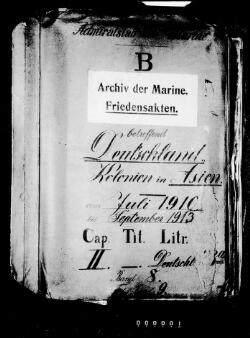 Admiralstab
B
Archiv der Marine.
Friedensakten.
betreffend
Deutschland.
Kolonien in Asien.
vom Juli 1910
bis September 1913
Cap. Tit. Litr.
II. Deutschl.
Band 8
9
000001